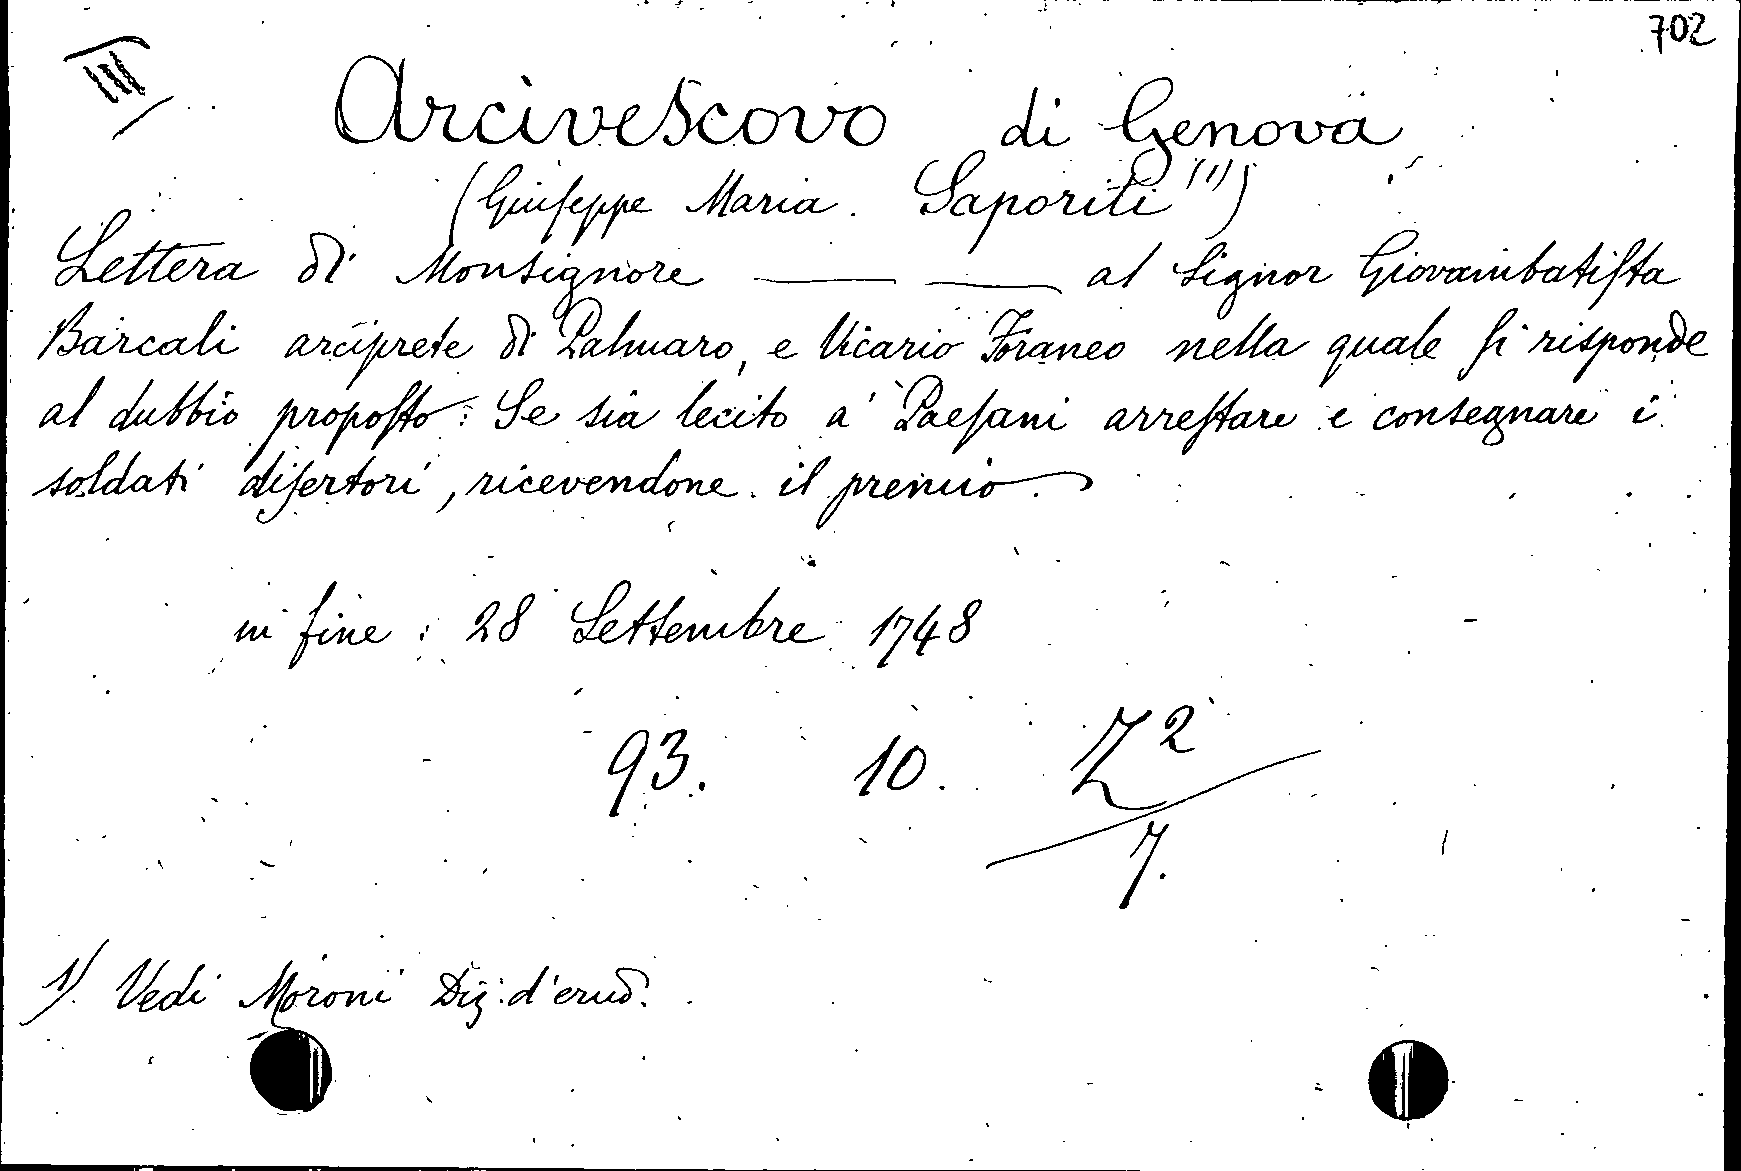 702
III
Arcivescovo di Genova
(Giuseppe Maria Saporiti (1))
Lettera di Monsignore ——— ——— al Signor Giovambatista
Barcali arciprete di Palmaro, e Vicario Foraneo nella quale si risponde
al dubbio proposto: Se sia lecito a' Paesani arrestare e consegnare i
soldati disertori, ricevendone il premio.
in fine: 28 Settembre 1748
93. 10. Z 2
7.
1) Vedi Moroni Diz: d'erud: